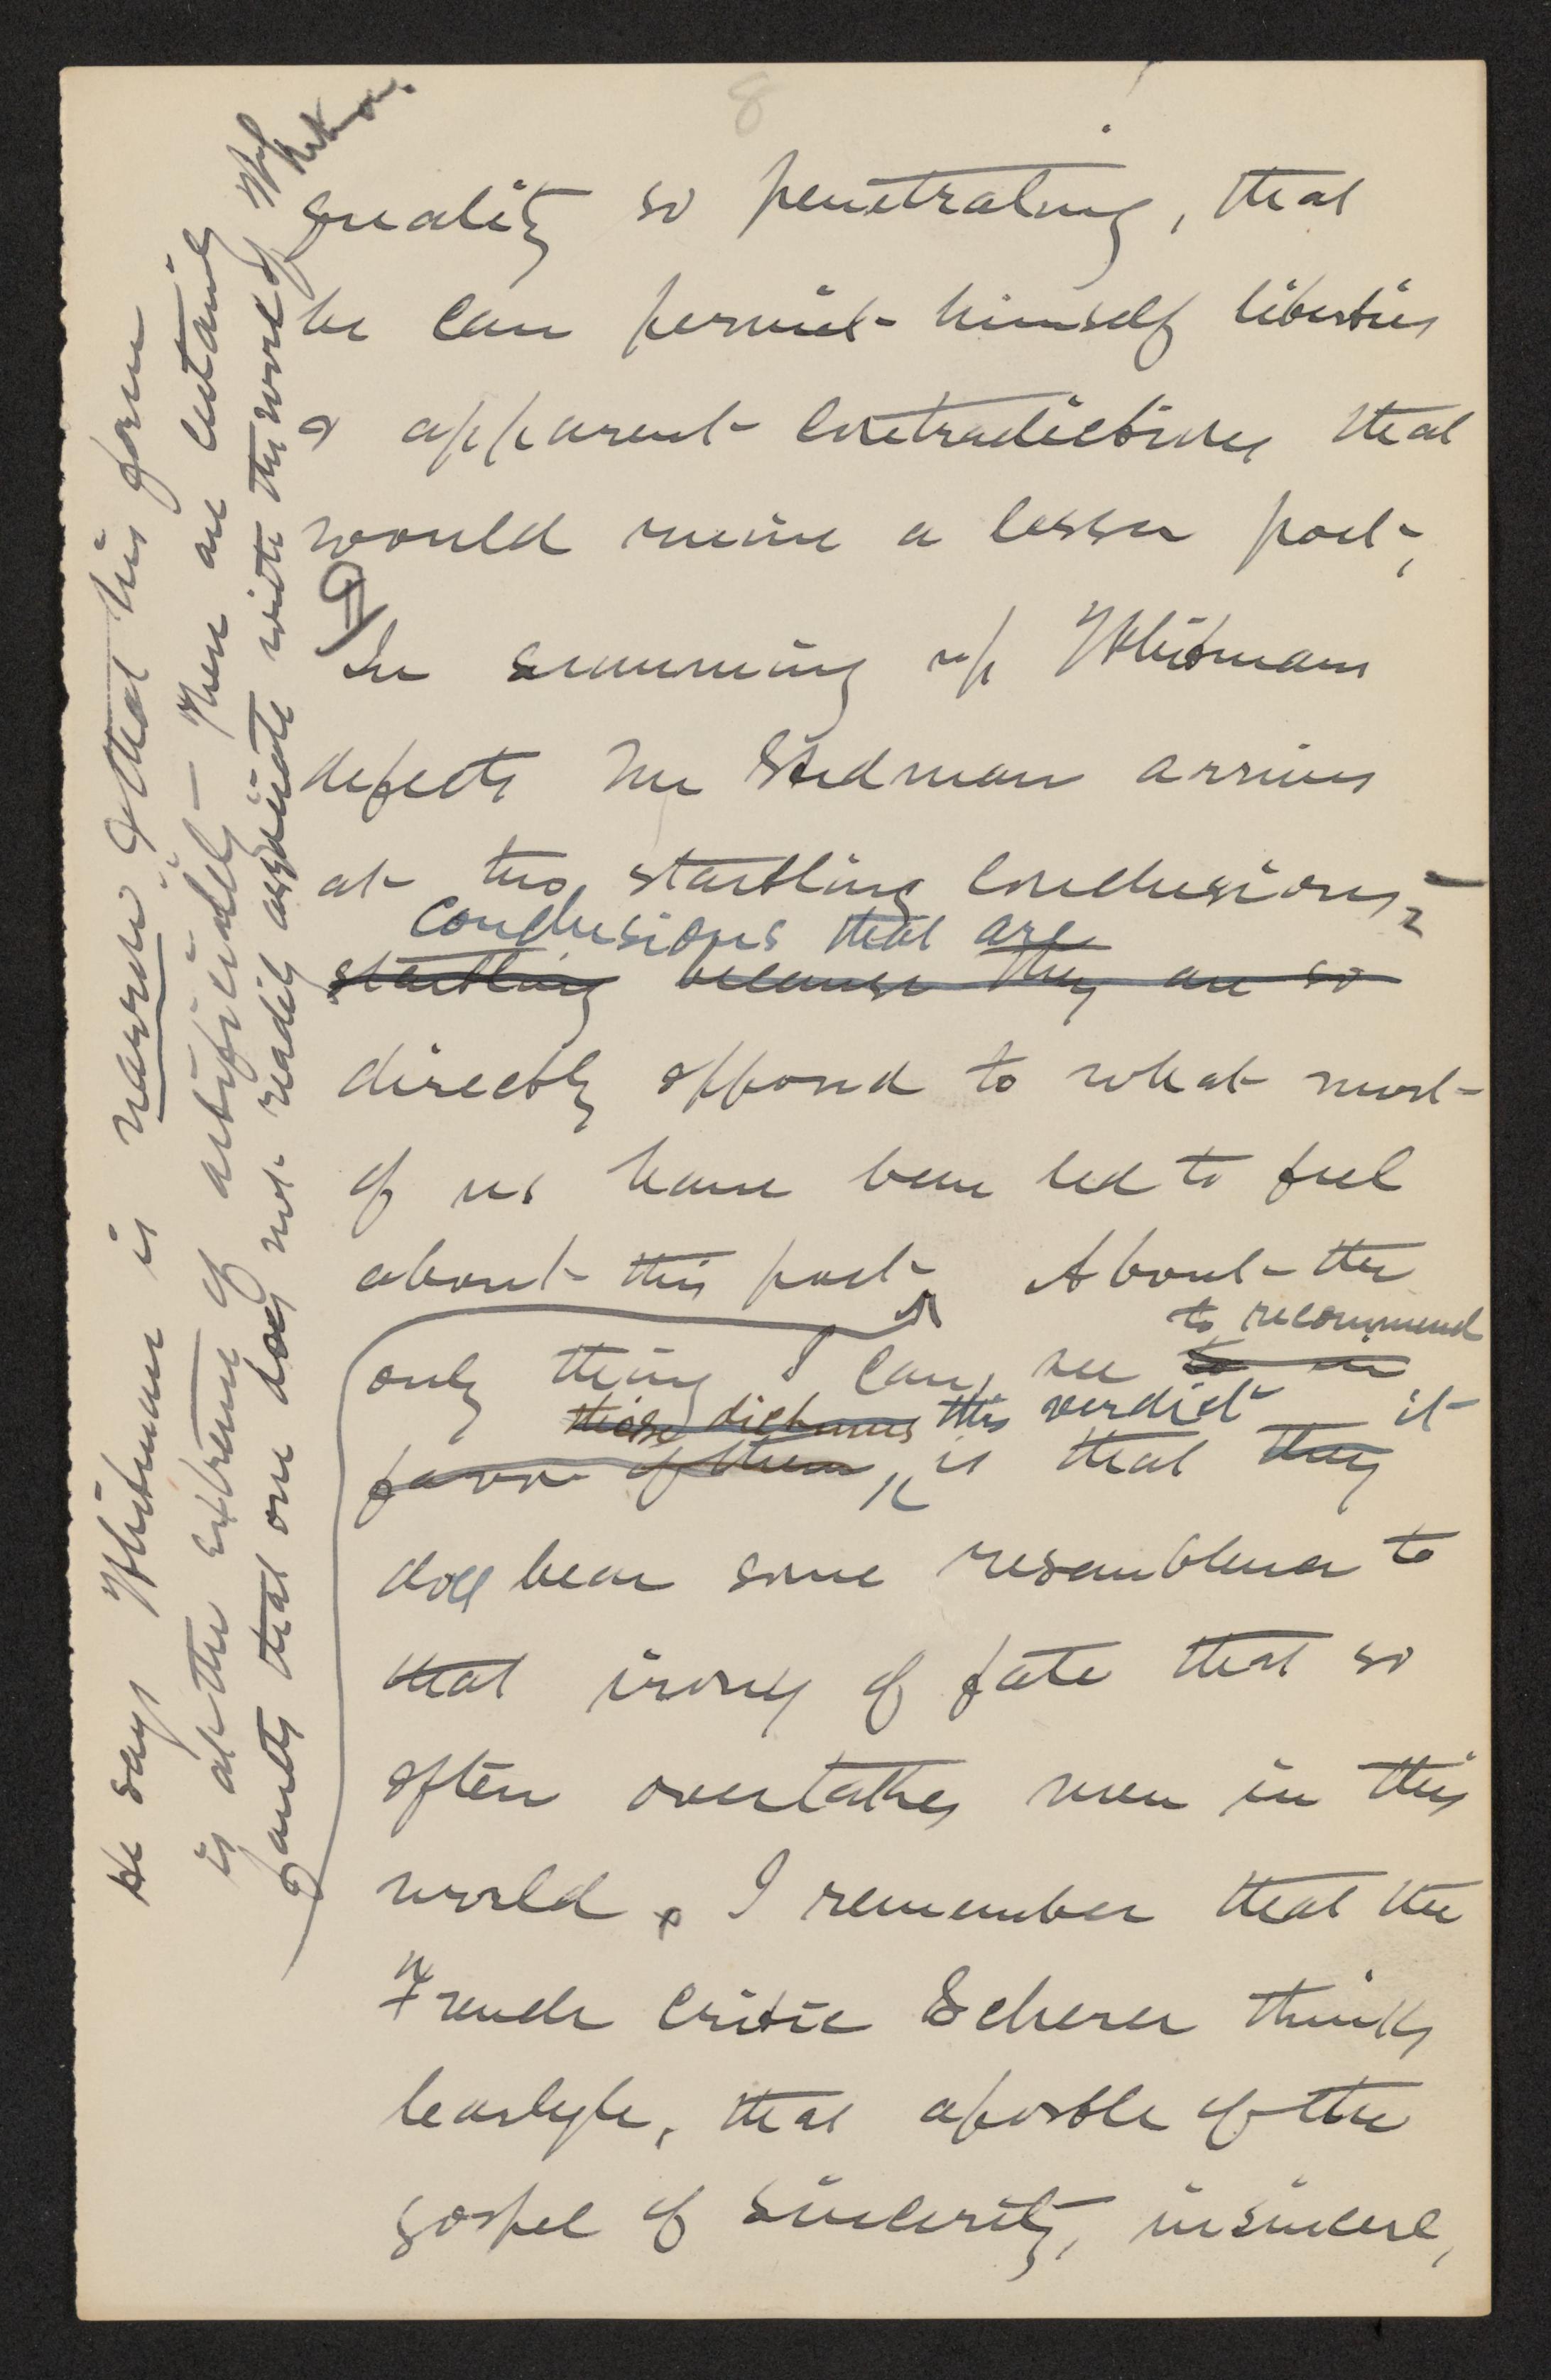 8
quality so penetrating, that
he can permit himself liberties
& apparent contradictions that
would ruin a lesser poet,
¶
In summing up Whitmans
defects Mr Stedman arrives
at two startling conclusions,
conclusions that are
startling because they are so
directly opposed to what most
of us have been led to feel
about this poet. About the
to recommend
only thing I can see to in
those dictums this verdict it
favor of them, is that they
does bear some resemblance to
that irony of fate that so
often overtakes men in this
world. I remember that the
French critic Scherer thinks
Carlyle, that apostle of the
gospel of sincerity, insincere,
He says Whitman is narrow & that his form
is at the extreme of artificiality — These are certainly
faults that one does not readily associate with the works of Walt
Whitman.